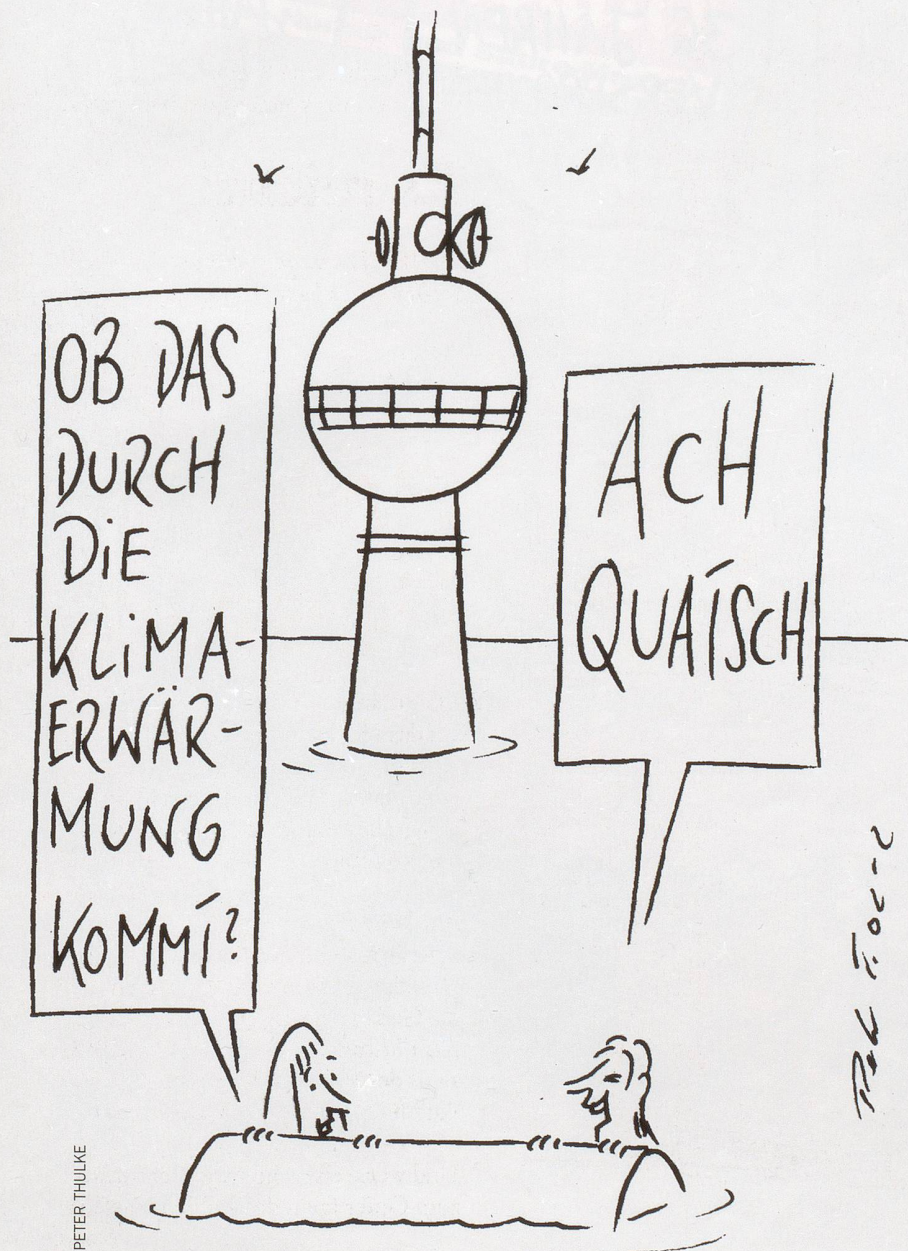 OB DAS
DURCH
DiE
KLiMA-
ERWÄR-
MUNG
KOMMT?
ACH
QUATSCH
PETER THULKE